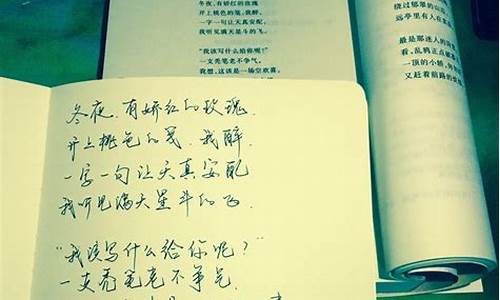 冬夜，有娇红的玫瑰
开上桃色的笺，我醉，
一字一句让天真安配，
我听见满天星斗的飞。
“我该写什么给你呢？”
一支秃笔老不争气。
我想，这该是一场空欢喜。
绕过郁翠的山
远亭里有人在
最是那迷人的
看，乱鸦正点破
一顶的小轿，
又赶着前路的
冬夜，有娇红的玫瑰，
开上桃色的笺，我醉，
一字一句让天真安配
我听见满天星斗的飞。
“我该写什么给你呢？”
一支秃笔老不争气。